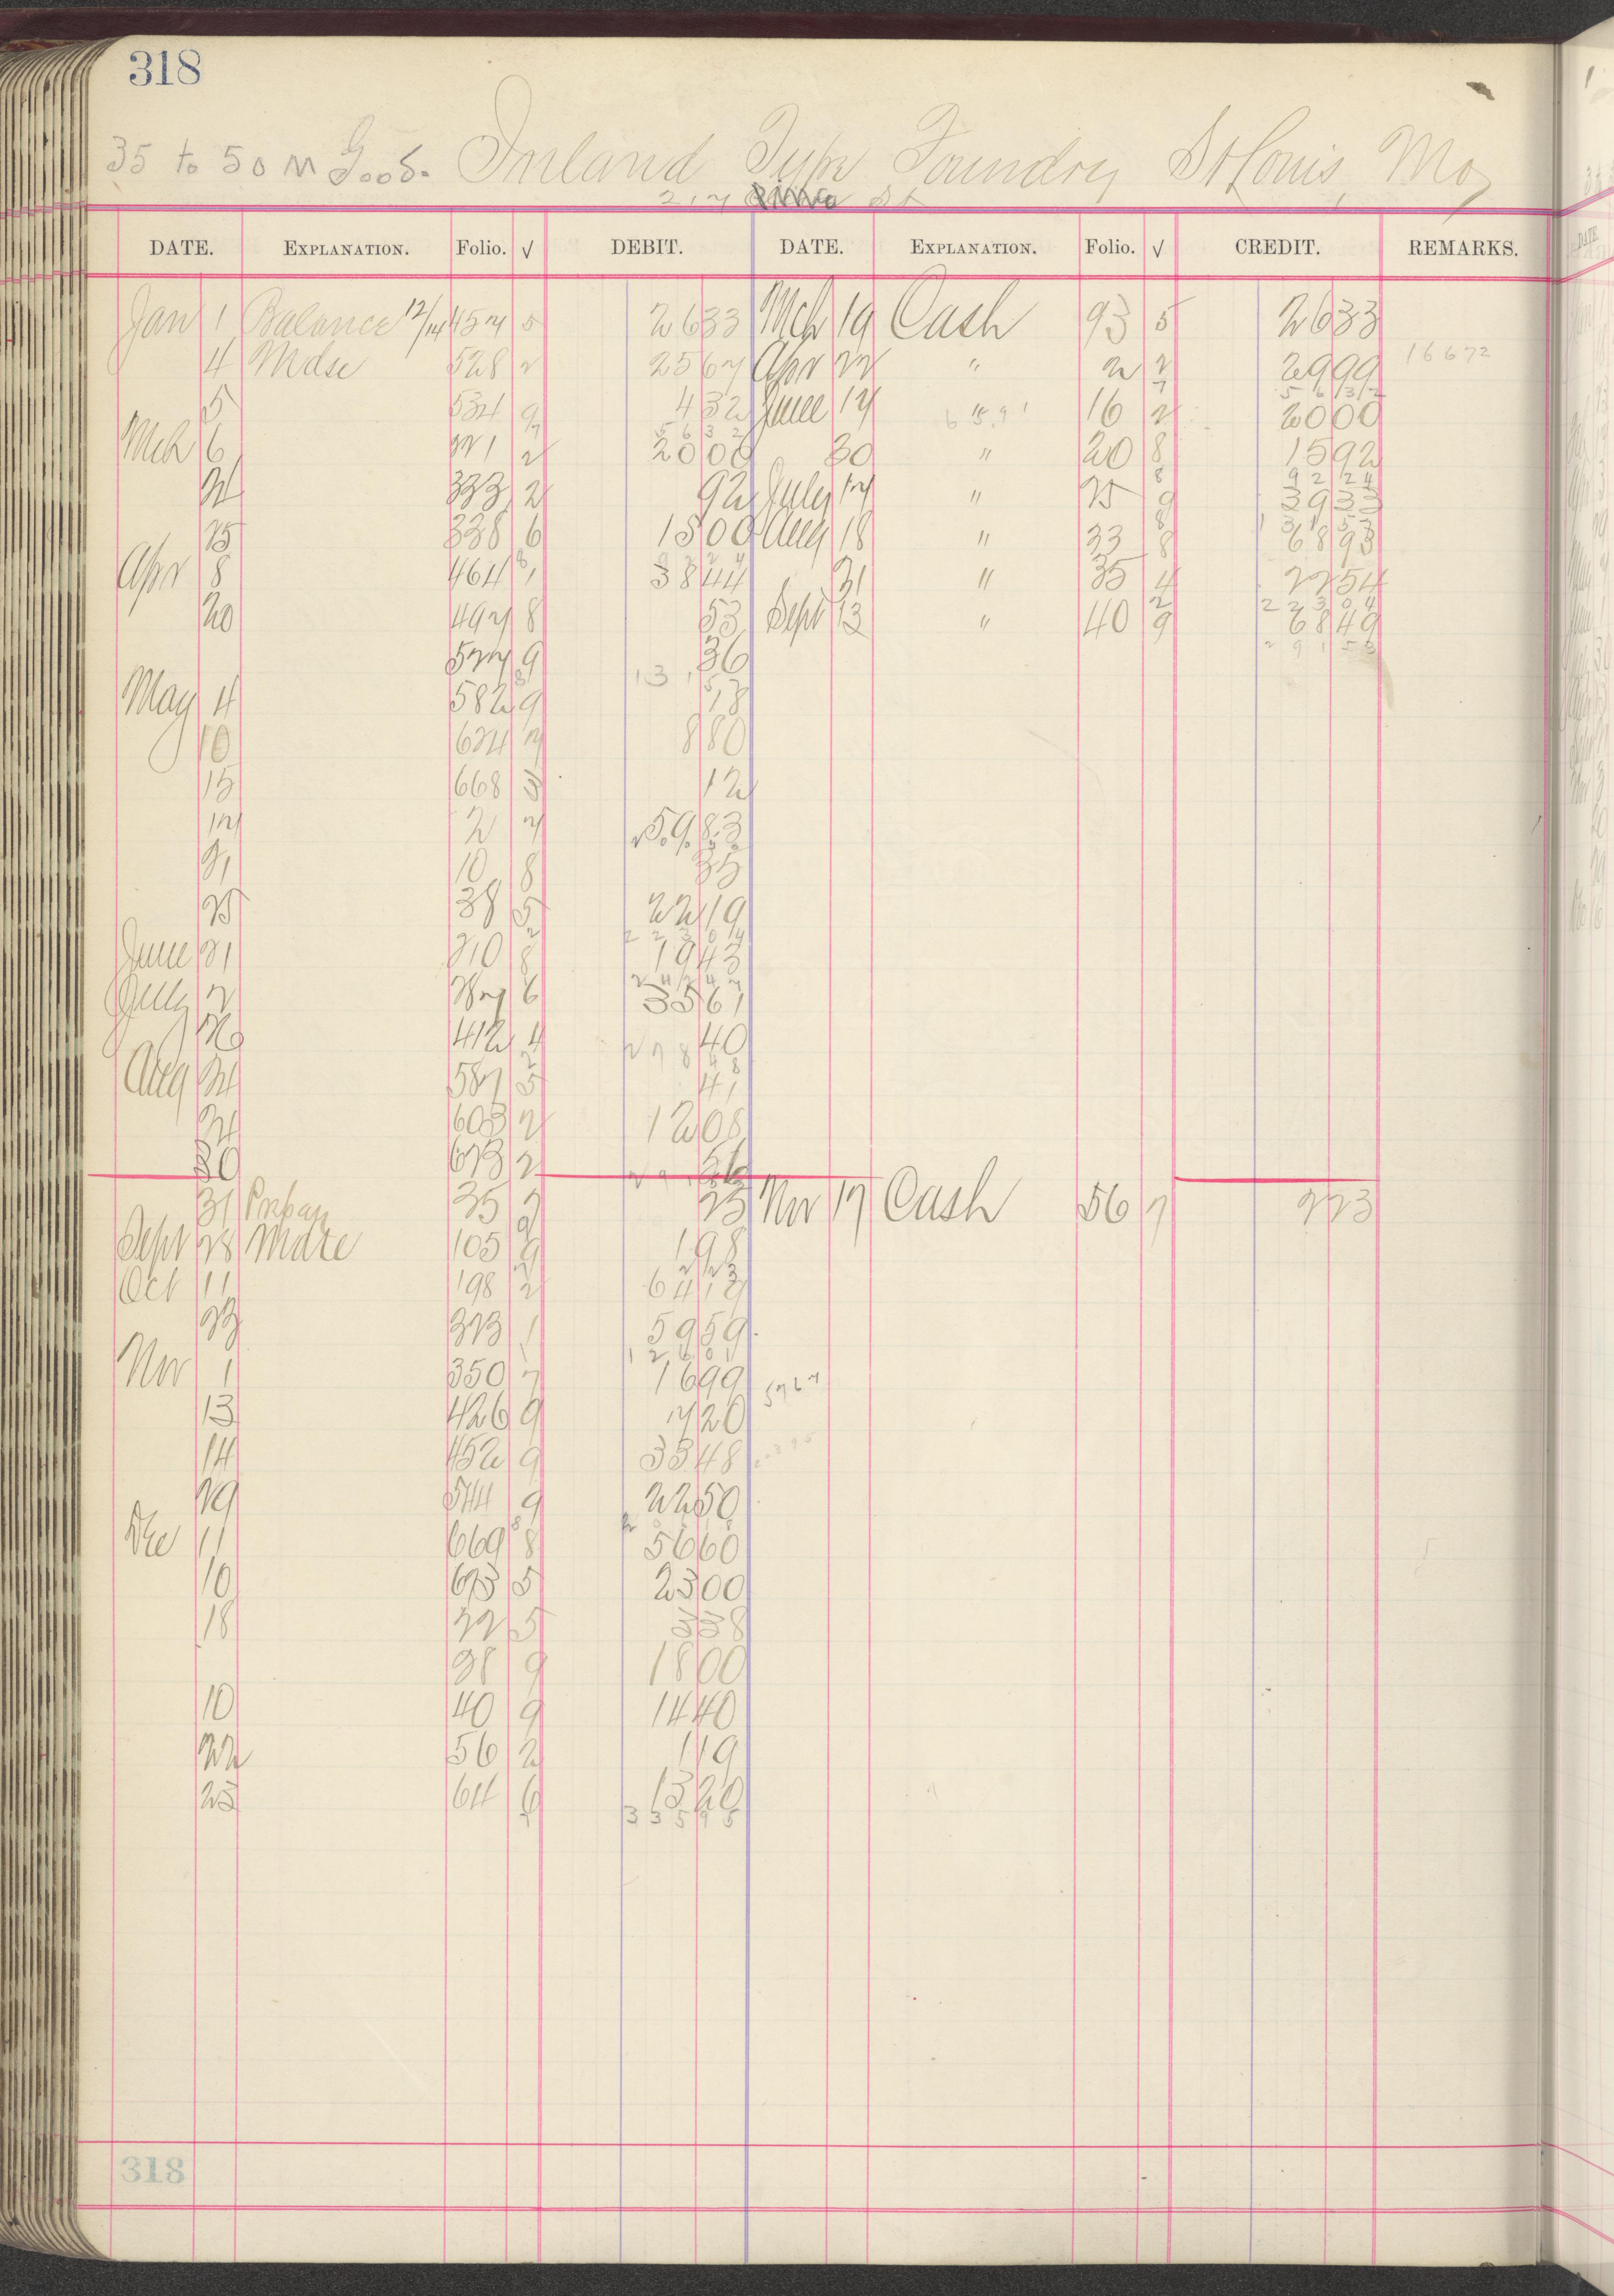 318
35 to 50 M Goods. Inland Type Foundry St Louis, Mo,
217 Pine St
DATE. EXPLANATION. Folio. √ DEBIT. DATE. EXPLANATION. Folio. √ CREDIT. REMARKS.
Jan 1 Balance 12/14 457 5 2633 Mch 19 Cash 93 5 2633
4 Mdse 528 2 2567 Apr 22 " 2 2 2999 16672
5 534 9 432 June 17 " 16 2 2000
Mch 6 2000 30 " 20 8 1592
333 2 92 July 17 " 25 9 3933
25 338 6 1500 Aug 18 " 33 8 6893
Apr 8 464 1 3844 31 " 35 4 2254
20 497 8 53 Sept 13 " 40 9 6849
527 9 36
May 4 582 9 18
10 624 7 880
15 668 3 12
17 2 7 5983
21 10 8 35
25 38 5 2219
22304
June 21 210 8 1943
July 2 6 3561
26 412 4 40
Aug 24 587 5 41
24 603 2 1208
30 673 2
31 35 7 25 Nov 17 Cash 56 7 223
Sept 28 Mdse 105 9 198
Oct 11 198 2 6412
23 323 1 5959
Nov 1 350 7 1699 5767
13 426 9 720
14 452 9 3348
29 544 9 2250
Dec 11 669 8 5660
10 673 5 2300
18 22 5 338
28 9 1800
10 40 9 1440
22 56 2 119
23 64 6 1320
33595
318